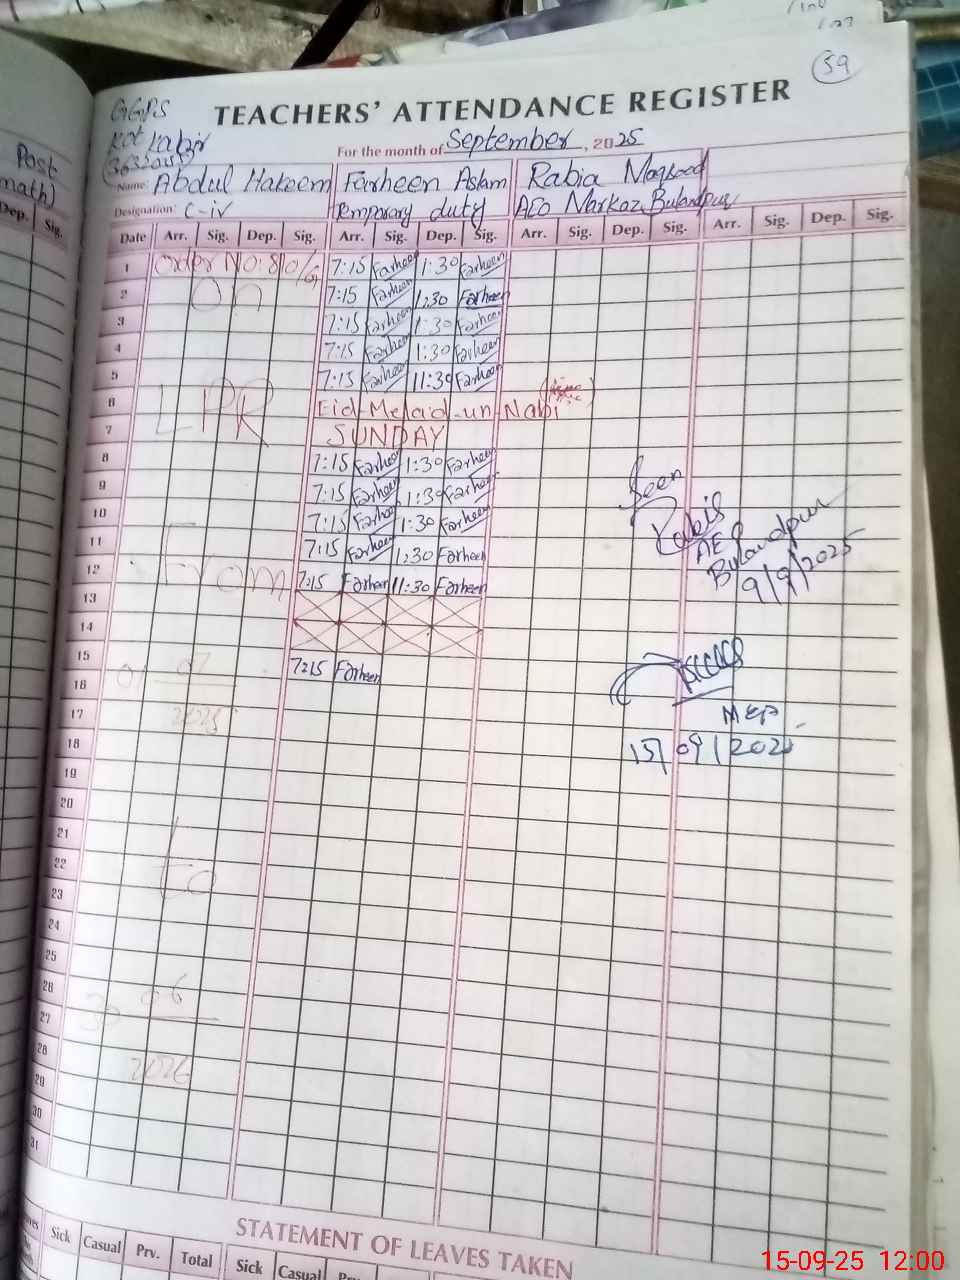 59
GGPS
Kot Kabir
TEACHERS' ATTENDANCE REGISTER
For the month of September, 2025
Name: Abdul Hakeem Farheen Aslam Rabia Maqsood
Designation: C-iv Temporary duty AEO Markaz Bulandpur
Date Arr. Sig. Dep. Sig. Arr. Sig. Dep. Sig. Arr. Sig. Dep. Sig. Arr. Sig. Dep. Sig.
1 Order NO: 810/G 7:15 Farheen 1:30 Farheen
2 on 7:15 Farheen 1:30 Farheen
3 7:15 Farheen 1:30 Farheen
4 7:15 Farheen 1:30 Farheen
5 7:15 Farheen 11:30 Farheen
6 LPR Eid-Melad-un-Nabi
7 SUNDAY
8 7:15 Farheen 1:30 Farheen
9 7:15 Farheen 1:30 Farheen
10 7:15 Farheen 1:30 Farheen
11 7:15 Farheen 1:30 Farheen
12 From 7:15 Farheen 11:30 Farheen
13
14
15 7:15 Farheen
16 01 07
17 2025
18
19
20
21
22 to
23
24
25
26
27 30 06
28 2026
29
30
31
Seen
Rabia
AEO
Bulandpur
9/9/2025
MEA
15/09/2025
STATEMENT OF LEAVES TAKEN
Sick Casual Prv. Total Sick Casual
Post
math)
Dep. Sig.
15-09-25 12:00